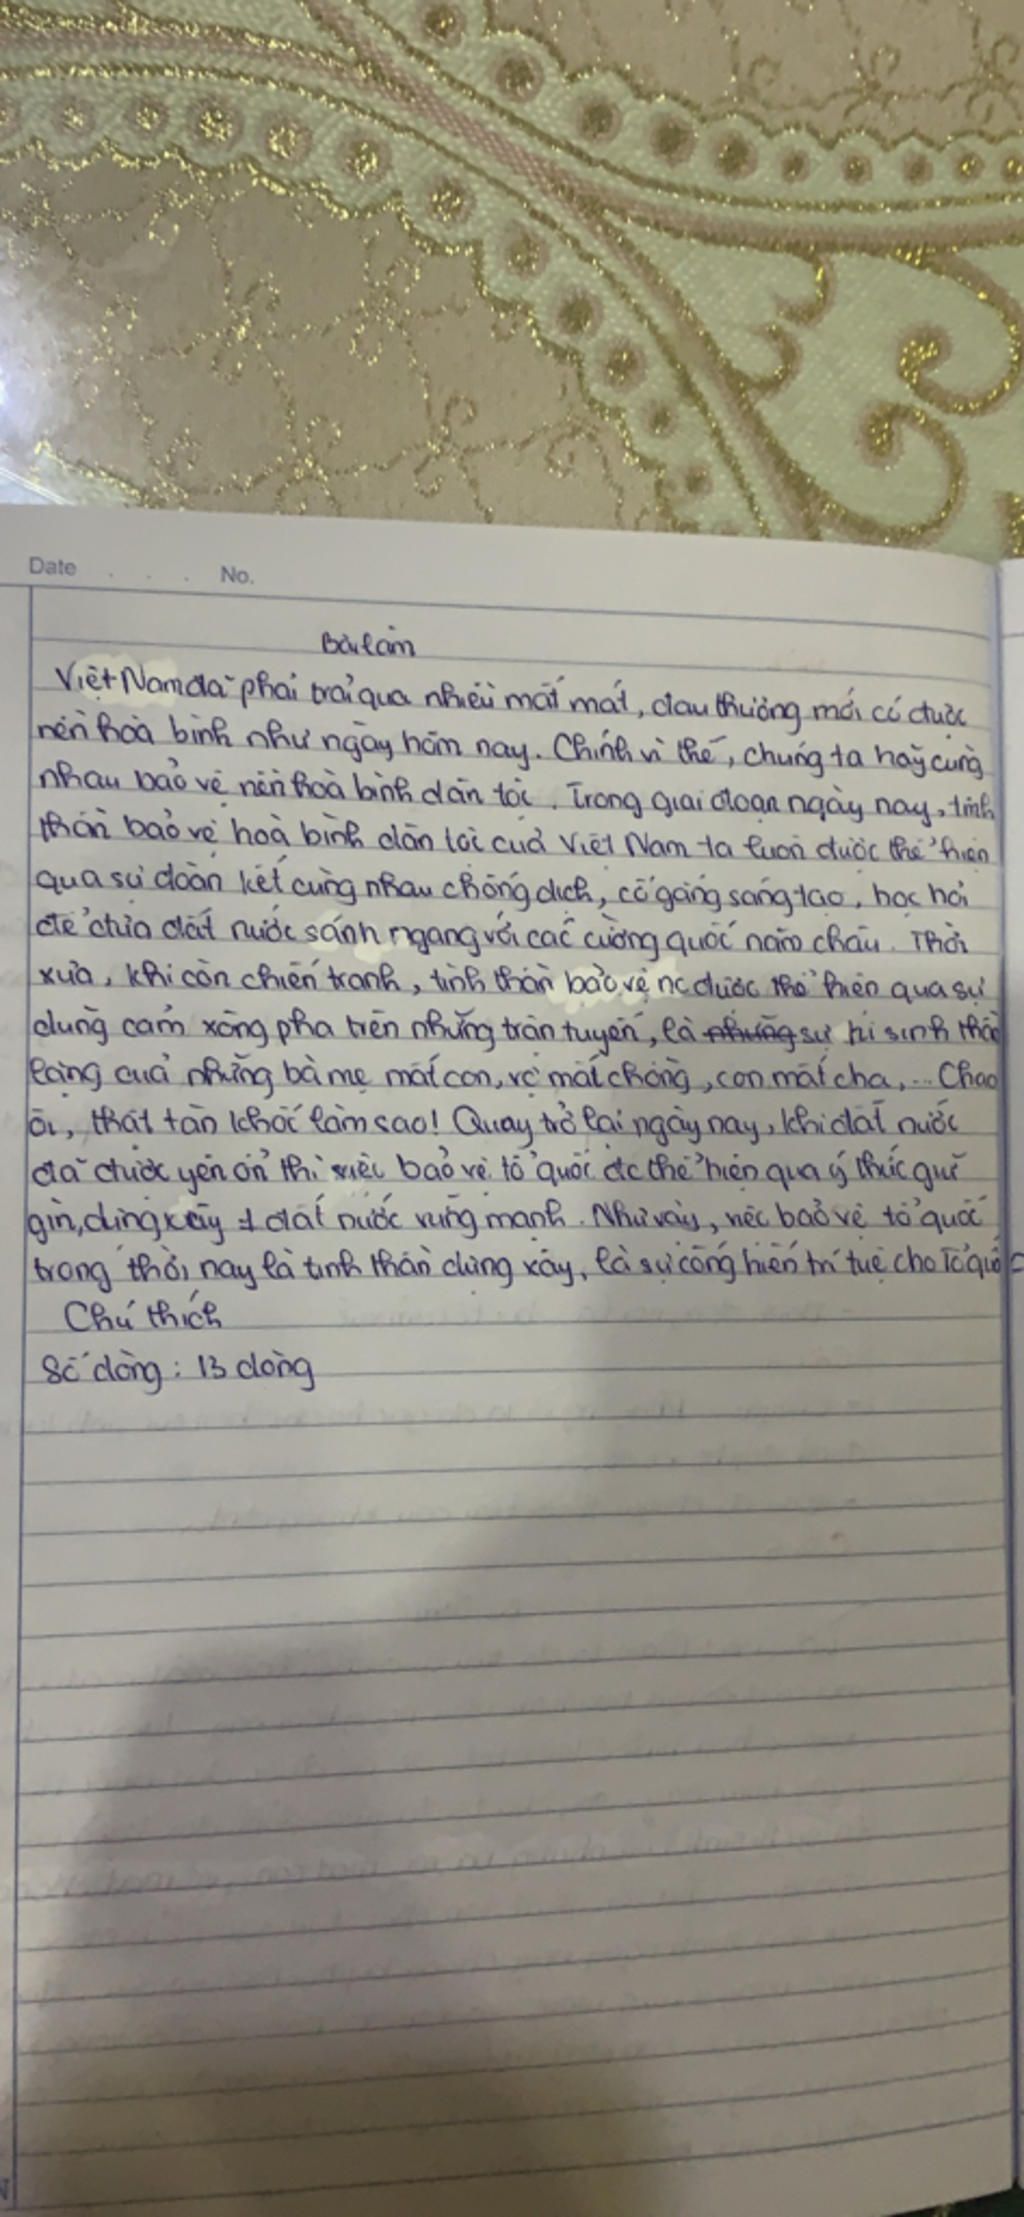 Date . . . No.
Bài làm
Việt Nam đã phải trải qua nhiều mất mát, đau thương mới có được
nền hoà bình như ngày hôm nay. Chính vì thế, chúng ta hãy cùng
nhau bảo vệ nền hoà bình dân tộc. Trong giai đoạn ngày nay, tinh
thần bảo vệ hoà bình dân tộc của Việt Nam ta luôn được thể hiện
qua sự đoàn kết cùng nhau chống dịch, cố gắng sáng tạo, học hỏi
để đưa đất nước sánh ngang với các cường quốc năm châu. Thời
xưa, khi còn chiến tranh, tinh thần bảo vệ nc được thể hiện qua sự
dũng cảm xông pha trên những trận tuyến, là những sự hi sinh thầm
lặng của những bà mẹ mất con, vợ mất chồng, con mất cha,... Chao
ôi, thật tàn khốc làm sao! Quay trở lại ngày nay, khi đất nước
đã được yên ổn thì việc bảo vệ tổ quốc đc thể hiện qua ý thức giữ
gìn, dựng xây đất nước vững mạnh. Như vậy, việc bảo vệ tổ quốc
trong thời nay là tinh thần dựng xây, là sự cống hiến trí tuệ cho Tổ quốc
Chú thích
Số dòng: 13 dòng